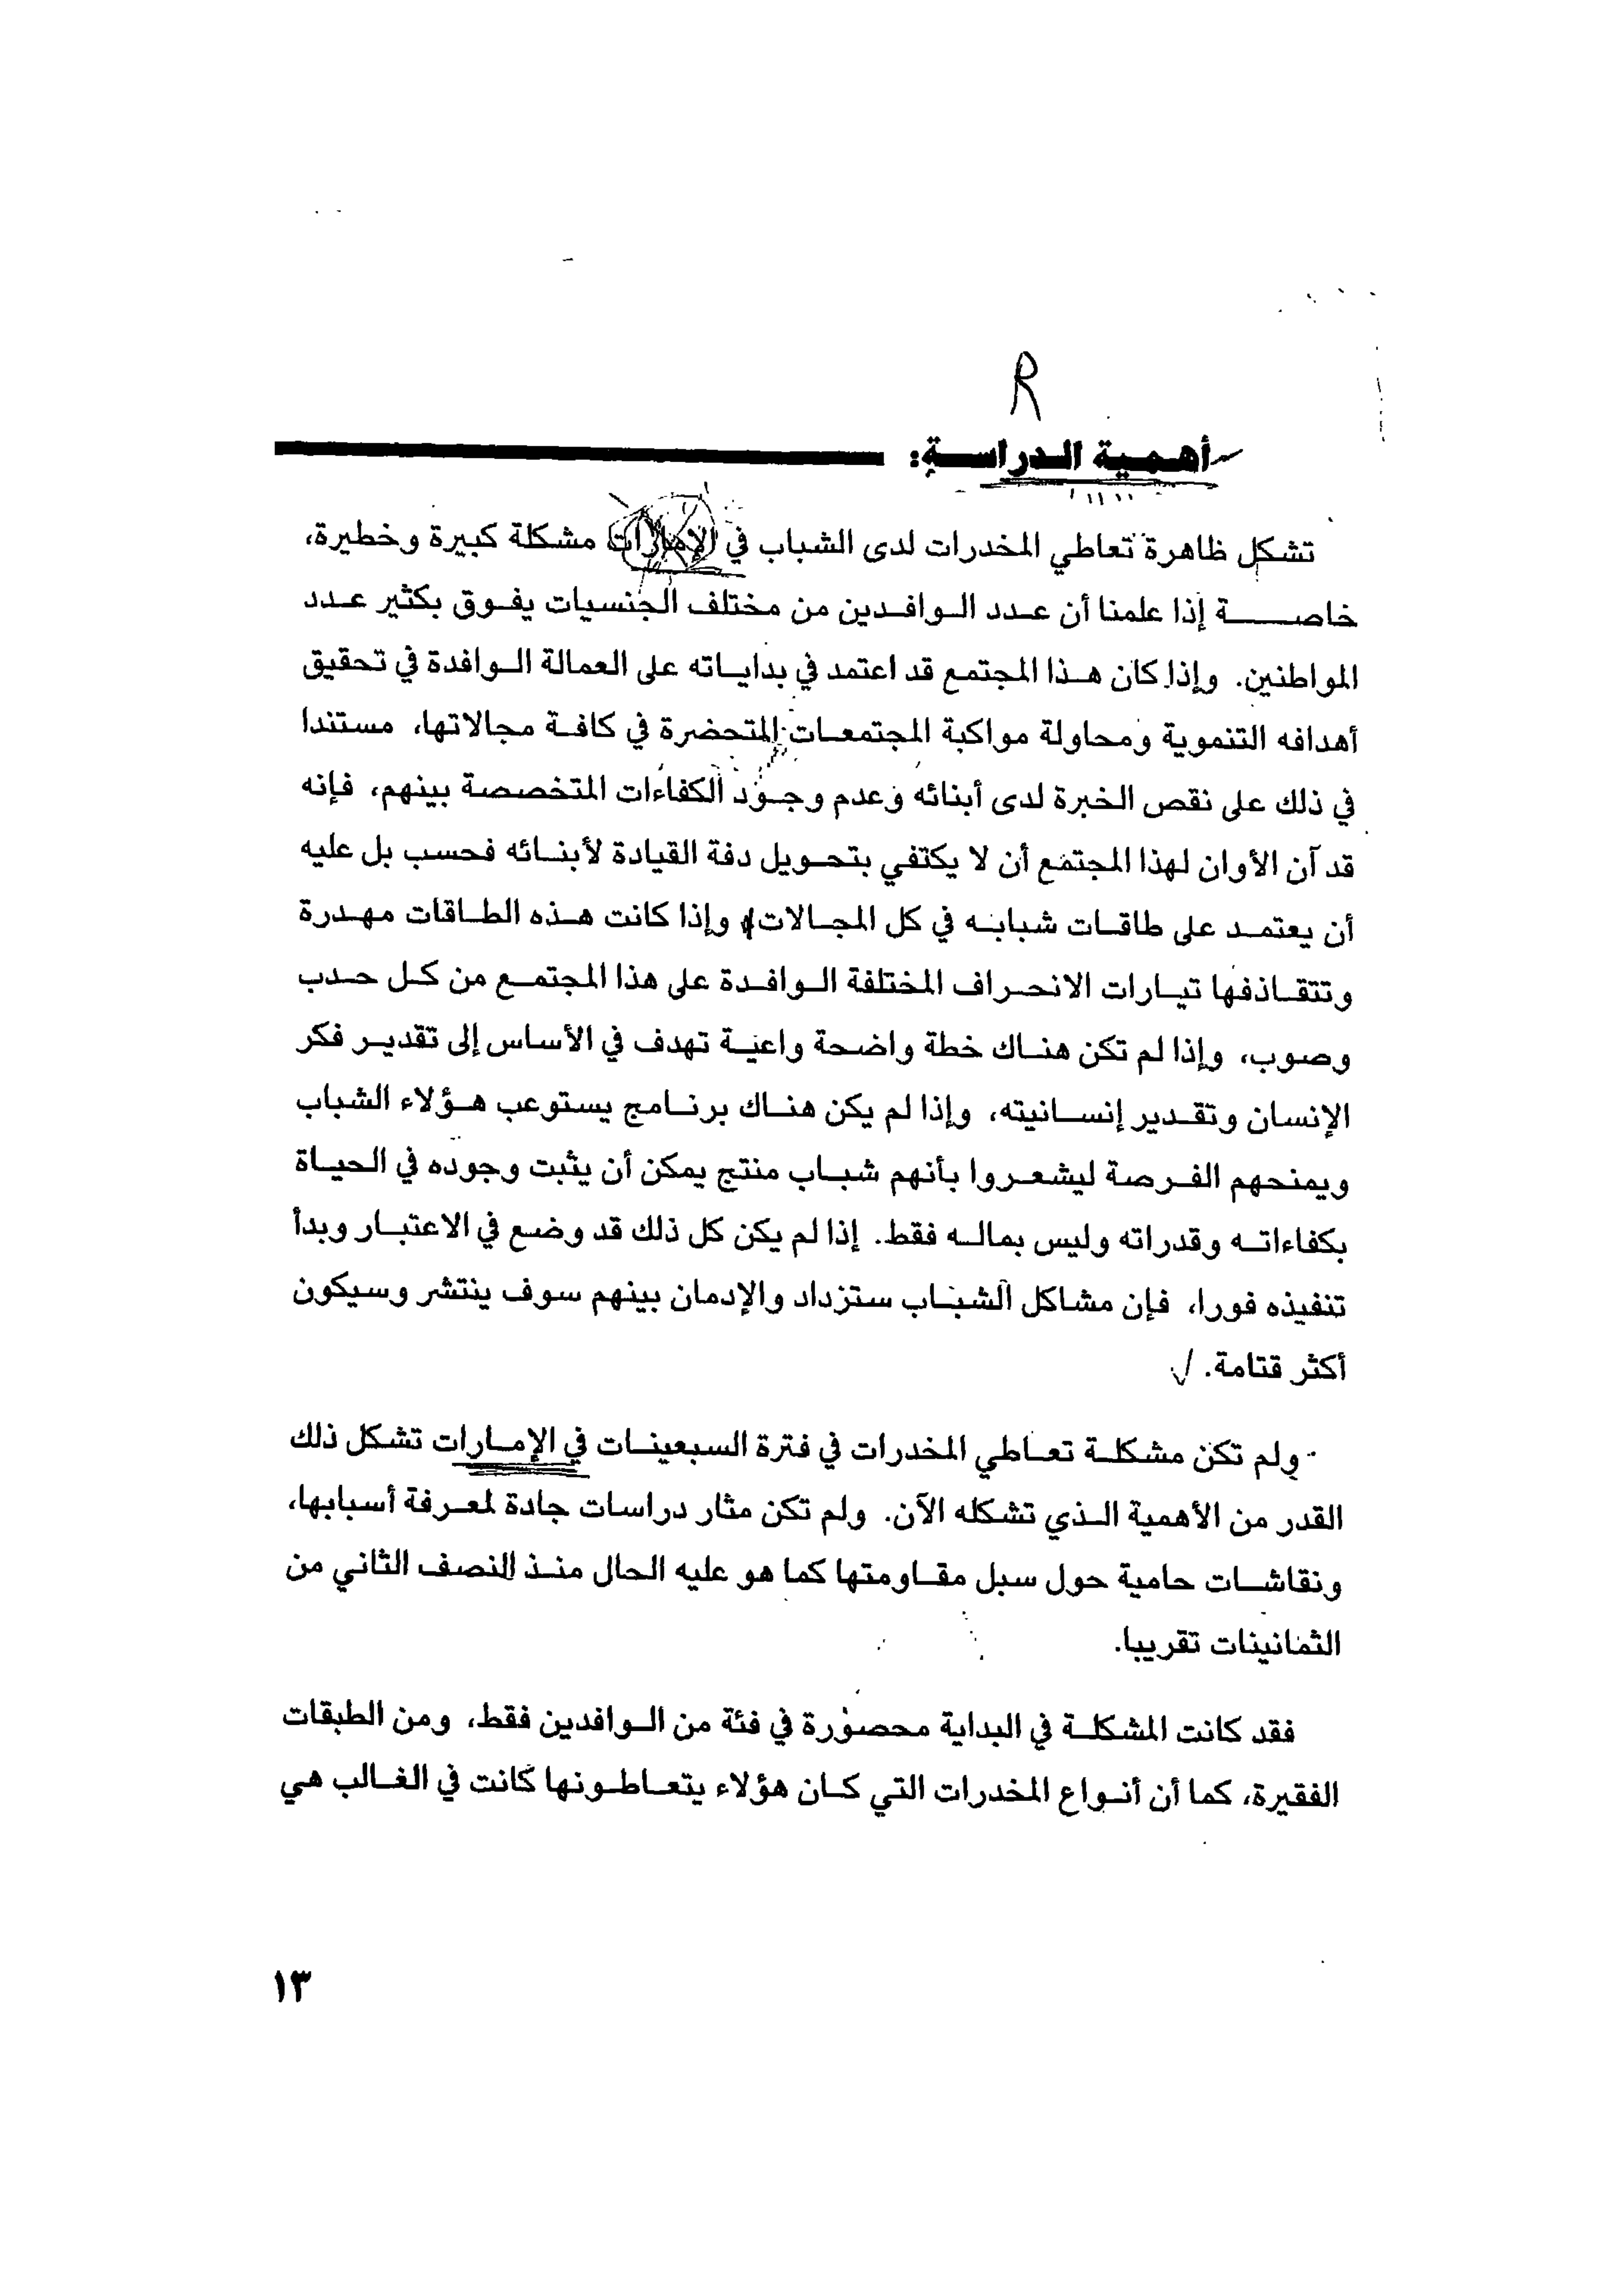 R
أهمية الدراسة:
تشكل ظاهرة تعاطي المخدرات لدى الشباب في الإمارات مشكلة كبيرة وخطيرة،
خاصة إذا علمنا أن عدد الوافدين من مختلف الجنسيات يفوق بكثير عدد
المواطنين. وإذا كان هذا المجتمع قد اعتمد في بداياته على العمالة الوافدة في تحقيق
أهدافه التنموية ومحاولة مواكبة المجتمعات المتحضرة في كافة مجالاتها، مستندا
في ذلك على نقص الخبرة لدى أبنائه وعدم وجود الكفاءات المتخصصة بينهم، فإنه
قد آن الأوان لهذا المجتمع أن لا يكتفي بتحويل دفة القيادة لأبنائه فحسب بل عليه
أن يعتمد على طاقات شبابه في كل المجالات، وإذا كانت هذه الطاقات مهدرة
وتتقاذفها تيارات الانحراف المختلفة الوافدة على هذا المجتمع من كل حدب
وصوب، وإذا لم تكن هناك خطة واضحة واعية تهدف في الأساس إلى تقدير فكر
الإنسان وتقدير إنسانيته، وإذا لم يكن هناك برنامج يستوعب هؤلاء الشباب
ويمنحهم الفرصة ليشعروا بأنهم شباب منتج يمكن أن يثبت وجوده في الحياة
بكفاءاته وقدراته وليس بماله فقط. إذا لم يكن كل ذلك قد وضع في الاعتبار وبدأ
تنفيذه فورا، فإن مشاكل الشباب ستزداد والإدمان بينهم سوف ينتشر وسيكون
أكثر قتامة.
ولم تكن مشكلة تعاطي المخدرات في فترة السبعينات في الإمارات تشكل ذلك
القدر من الأهمية الذي تشكله الآن. ولم تكن مثار دراسات جادة لمعرفة أسبابها،
ونقاشات حامية حول سبل مقاومتها كما هو عليه الحال منذ النصف الثاني من
الثمانينات تقريبا.
فقد كانت المشكلة في البداية محصورة في فئة من الوافدين فقط، ومن الطبقات
الفقيرة، كما أن أنواع المخدرات التي كان هؤلاء يتعاطونها كانت في الغالب هي
١٣